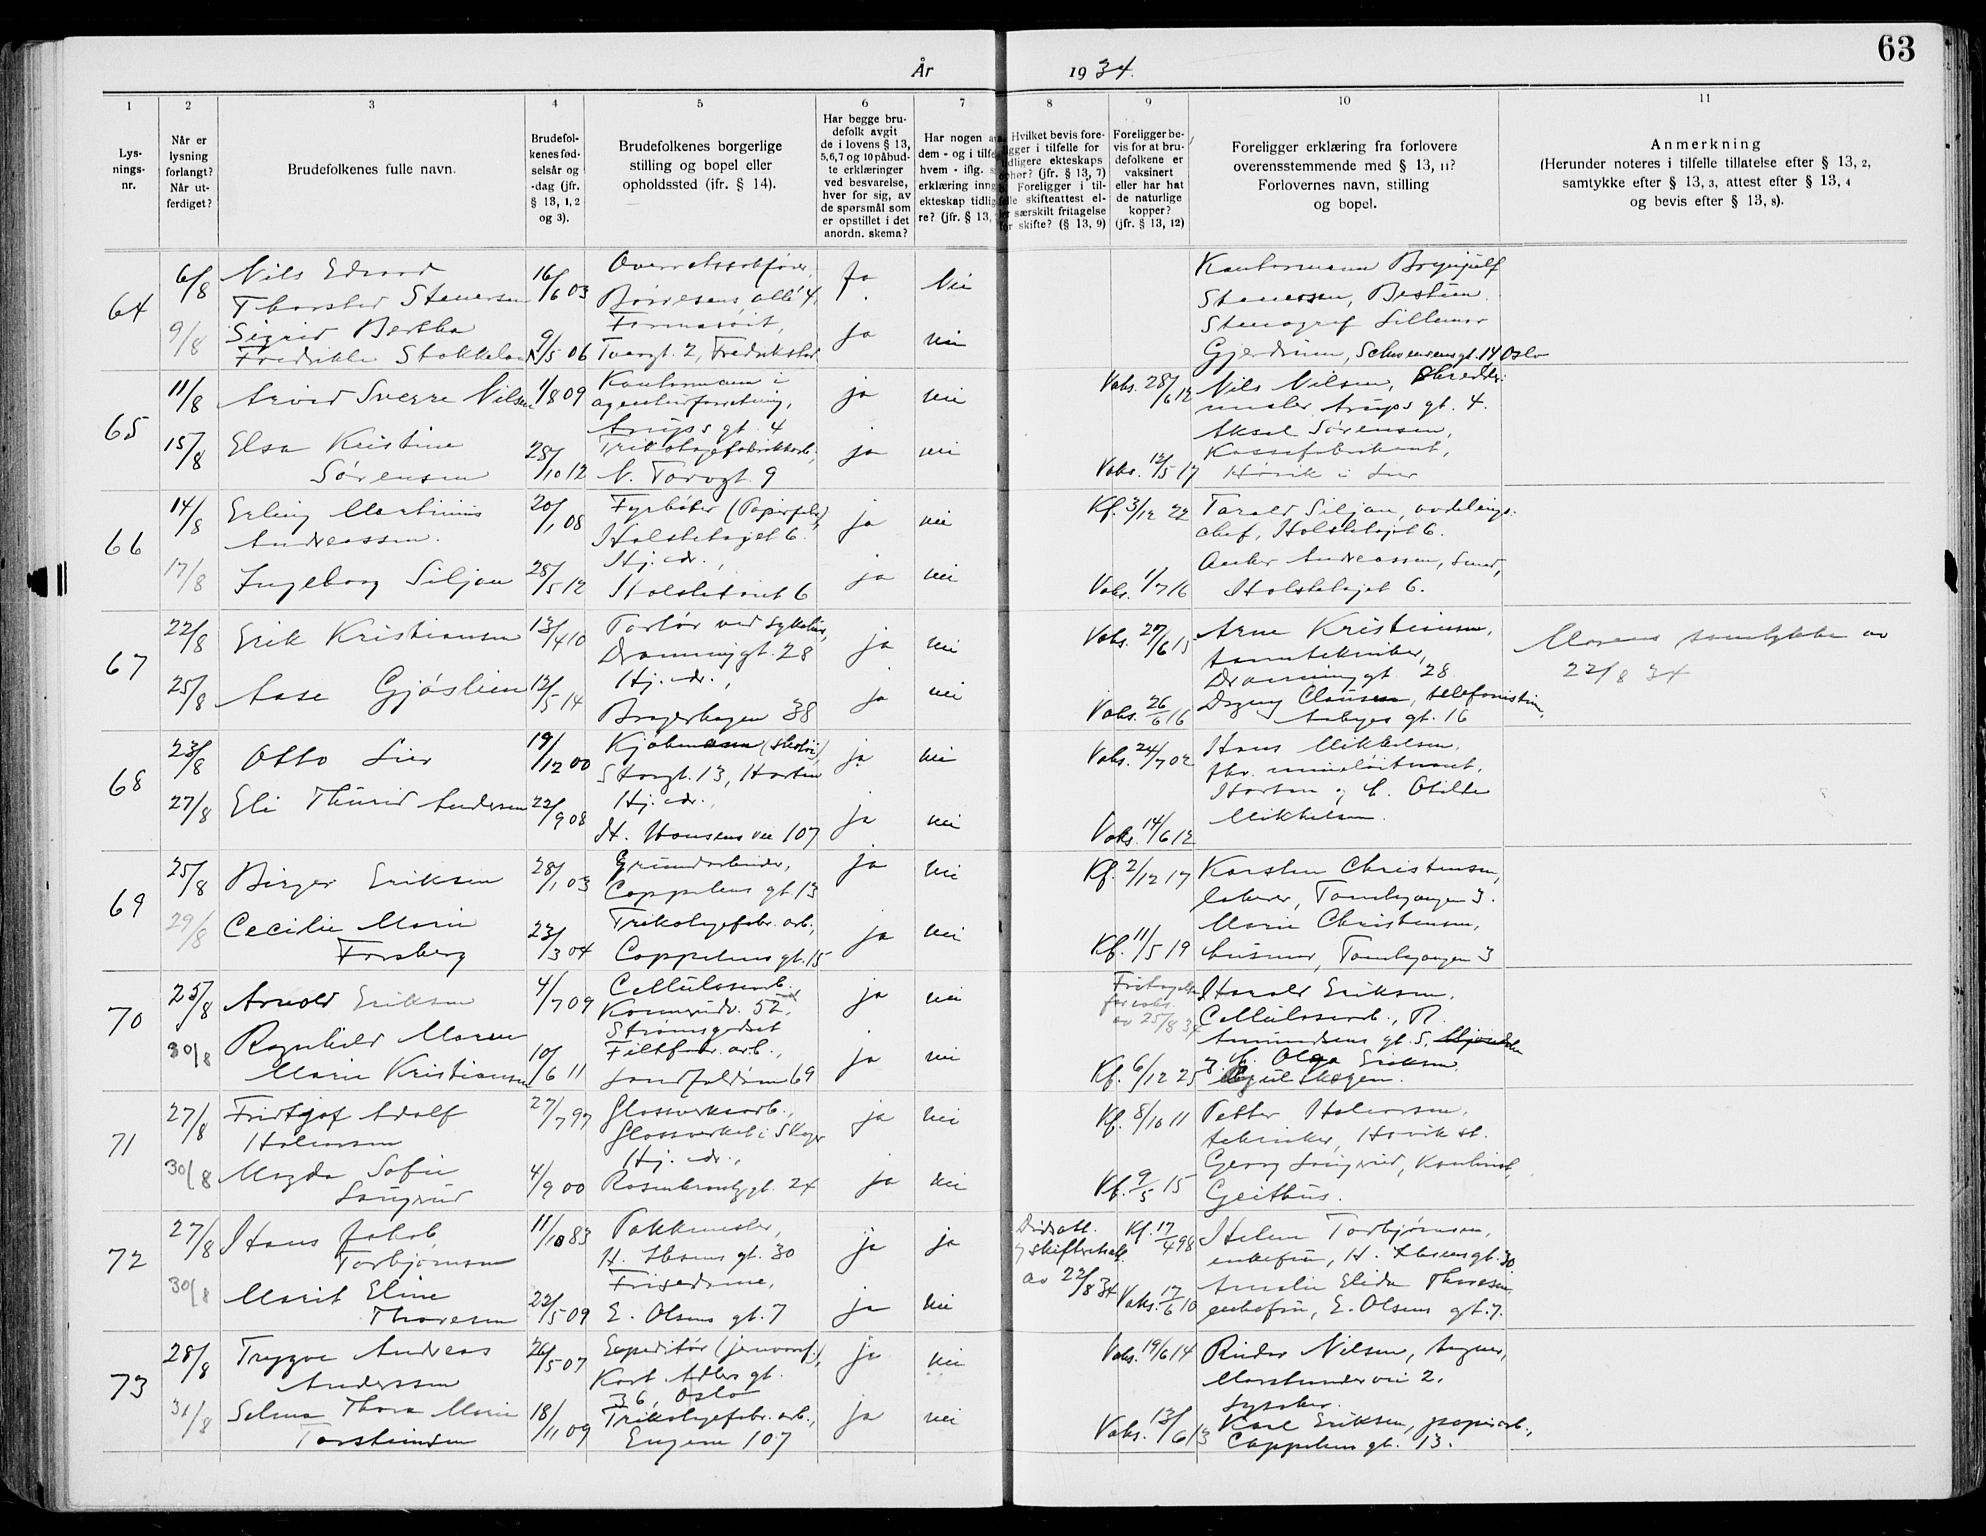 63
År 1934.
1 2 3 4 5 6 7 8 9 10 11
Lys-
nings-
nr.
Når er
lysning
forlangt?
Når ut-
ferdiget?
Brudefolkenes fulle navn.
Brudefol-
kenes fød-
selsår og
-dag (jfr.
§ 13, 1, 2
og 3).
Brudefolkenes borgerlige
stilling og bopel eller
opholdssted (ifr. § 14).
Har begge bru-
defolk avgit
de i lovens § 13,
5, 6, 7 og 10 påbud-
te erklæringer
ved besvarelse,
hver for sig, av
de spørsmål som
er opstillet i det
anordn. skema?
Har nogen a
dem - og i tilf
hvem - iflg. s
erklæring inng
ekteskap tidlig
re? (jfr. § 13,
Hvilket bevis fore-
ligger i tilfelle for
tidligere ekteskaps
ophør? (jfr. § 13, 7)
Foreligger i til-
felle skifteattest el-
ler særskilt fritagelse
for skifte? (§ 13, 9)
Foreligger be-
vis for at bru-
defolkene er
vaksinert
eller har hat
de naturlige
kopper?
(jfr. § 13, 12)
Foreligger erklæring fra forlovere
overensstemmende med § 13, 11?
Forlovernes navn, stilling
og bopel.
Anmerkning
(Herunder noteres i tilfelle tillatelse efter § 13, 2,
samtykke efter § 13, 3, attest efter § 13, 4
og bevis efter § 13, 8).
64
6/8 Nils Edvard 16/6 03 Overrettssakfører, Ja Nei Kontormann Brynjulf
Thorstad Stenersen Børresens allé 4. Stenersen, Bestum.
9/8 Sigrid Bertha Farmasøit, Ja nei Stenograf Lillemor
Fredrikke Stokkeland 9/5 06 Tverrgt. 2, Fredrikstad Gjerdrum, Schweensensgt. 14 Oslo
65
11/8 Arvid Sverre Nilsen 1/8 09 Kontormann i ja nei Vaks. 28/6 12 Nils Nilsen, Skredder-
agenturforretning, mester Arups gt. 4.
Arups gt. 4 Aksel Sørensen,
15/8 Elsa Kristine Trikotagefabrikkarb., ja nei Kassefabrikant,
Sørensen 28/10 12 N. Torvgt. 9 Vaks. 12/5 17 Høvik i Lier
66
14/8 Erling Martinius 20/1 08 Fyrbøter (Papirfabr.) ja nei Kf. 3/12 22 Tarald Siljan, avdelings-
Andreassen. Holstetajet 6. chef, Holstetajet 6.
17/8 Ingeborg Siljan 28/5 12 Hj. dr., ja nei Vaks. 1/7 16 Anker Andreassen, Smed,
Holstetajet 6 Holstetajet 6.
67
22/8 Erik Kristiansen 13/4 10 Portør ved sykehus, ja nei Vaks. 27/6 15 Arne Kristiansen,
Drammengt. 28 tanntekniker,
Drammengt. 28
25/8 Aase Gjøstein 12/5 14 Hj. dr., ja nei Vaks. 26/6 16 Dagny Clausen, telefonistin,
Bragerhagen 38 Aabyes gt. 16
Morens samtykke av
22/8 34
68
23/8 Otto Lier 19/12 00 Kjøbmann (skotøi), ja nei Vaks. 24/7 02 Hans Mikkelsen,
Storgt. 13, Horten fhv. mineløitnant,
27/8 Eli Thurid Andersen 22/9 08 Hj. dr., ja nei Horten og f. Otilde
H. Hansens vei 107 Vaks. 14/6 12 Mikkelsen.
69
25/8 Birger Eriksen 28/1 03 Grundarbeider, ja nei Kf. 2/12 17 Karsten Christensen,
Cappelens gt. 13 laborer, Tomtegangen 3.
29/8 Cecilie Marie 23/3 04 Trikotagefabr. arb., ja nei Kf. 11/5 19 Marie Christensen,
Forsberg Cappelens gt. 15 husmor, Tomtegangen 3
70
25/8 Arnold Eriksen 4/7 09 Cellulosearb. ja nei Fritagelse Harald Eriksen,
Konnerudv. 52, for vaks. Cellulosearb., R.
Strømsgodset av 25/8 34 Amundsens gt. 5,
30/8 Ragnhild Maren 10/6 11 Filtfabr. arb., ja nei Kf. 6/12 25 og f. Olga Eriksen
Marie Kristiansen Landfaldøen 69
71
27/8 Fridtjof Adolf 27/7 97 Glassverksarb., ja nei Kf. 8/10 11 Petter Halvorsen,
Halvorsen Glassverket i Skoger tekniker, Høvik st.
30/8 Magda Sofie 4/9 00 Hj. dr., ja nei Kf. 9/5 15 Georg Langrud, Kontorist,
Langrud Rosenkrantzgt. 24 Geithus.
72
27/8 Hans Jakob 11/10 83 Pakkmester, ja ja Dødsatt. Kf. 17/4 98 Helene Torbjørnsen,
Torbjørnsen H. Ibsens gt. 30 og skifteattest enkefru, H. Ibsensgt. 30
30/8 Marit Eline 22/5 09 Frisødame, ja nei av 22/8 34 Vaks. 17/6 10 Amalie Elida Thoresen,
Thoresen E. Olsens gt. 7 enkefru, E. Olsens gt. 7.
73
28/8 Trygve Andreas 26/5 07 Expeditør (jernvaref.), ja nei Vaks. 19/6 14 Reidar Nilsen, Agner,
Anderssen Kort Adlers gt. Marstrandervei 2,
36, Oslo Lysaker.
31/8 Selma Thora Marie 18/11 09 Trikotagefabr. arb., ja nei Vaks. 13/6 13 Karl Eriksen, papirarb.,
Torsteinsen Engene 107 Cappelens gt. 13.